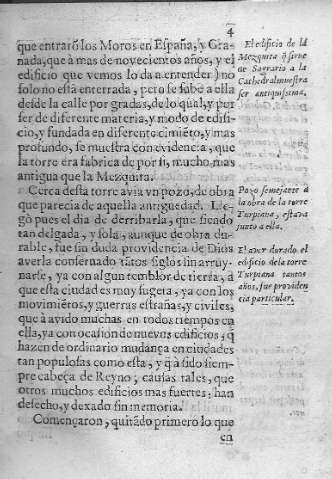 4
que entrarõ los Moros en España, y Gra-
nada, que à mas de novecientos años, y el
edificio que vemos lo da a entender) no
solo no está enterrada, pero se sube a ella
desde la calle por gradas, de lo qual, y por
ser de diferente materia, y modo de edifi-
cio, y fundada en diferente cimiēto, y mas
profundo, se muestra con evidencia, que
la torre era fabrica de por si, mucho mas
antigua que la Mezquita.
Cerca desta torre avia vn pozo, de obra
que parecia de aquella antiguedad. Lle-
gò pues el dia de derribarla, que siendo
tan delgada, y sola, aunque de obra du-
rable, fue sin duda providencia de Dios
averla conservado tātos siglos sin arruy-
narse, ya con algun temblor de tierra, à
que esta ciudad es muy sugeta, ya con los
movimiētos, y guerras estrañas, y civiles,
que à avido muchas en todos tiempos en
ella, ya con ocasion de nuevos edificios, q̃
hazen de ordinario mudança en ciudades
tan populosas como esta, y q̃ à sido siem-
pre cabeça de Reyno; causas tales, que
otros muchos edificios mas fuertes, han
desecho, y dexado sin memoria.
Començaron, quitādo primero lo que
en
El edificio de la
Mezquita q̃ sirve
de Sagrario a la
Cathedral muestra
ser antiquissima.
Pozo semejante à
la obra de la torre
Turpiana, estava
junto a ella.
El aver durado el
edificio de la torre
Turpiana tantos
años, fue providen
cia particular.